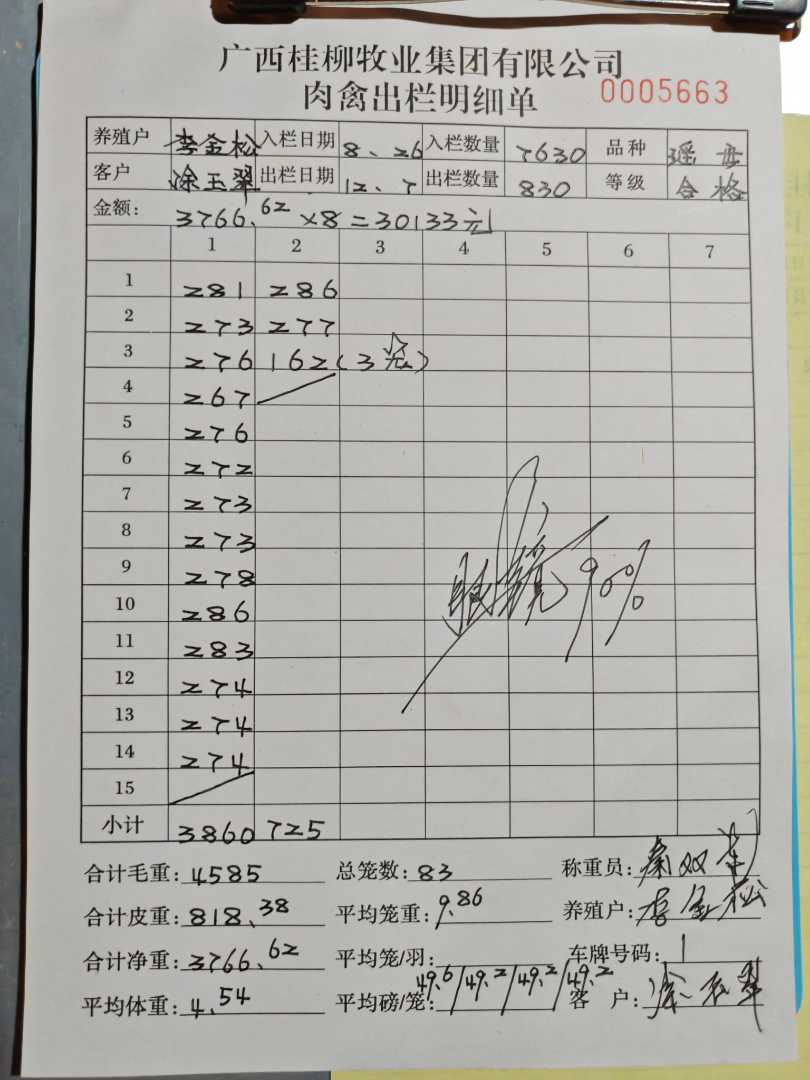 广西桂柳牧业集团有限公司
肉禽出栏明细单 0005663
养殖户 李金松 入栏日期 8、26 入栏数量 7630 品种 瑶
客户 涂玉翠 出栏日期 12、7 出栏数量 830 等级 合格
金额: 3766.62 ×8=30133元
1 2 3 4 5 6 7
1 281 286
2 273 277
3 276 162(3笼)
4 267
5 276
6 272
7 273
8 273
9 278
10 286
11 283
12 274
13 274
14 274
15
小计 3860 725
90%
合计毛重: 4585 总笼数: 83 称重员: 秦双
合计皮重: 818.38 平均笼重: 9.86 养殖户: 李金松
合计净重: 3766.62 平均笼/羽: 车牌号码: 1
平均体重: 4.54 平均磅/笼: 49.6/49.2/49.2/49.2 客 户: 涂玉翠